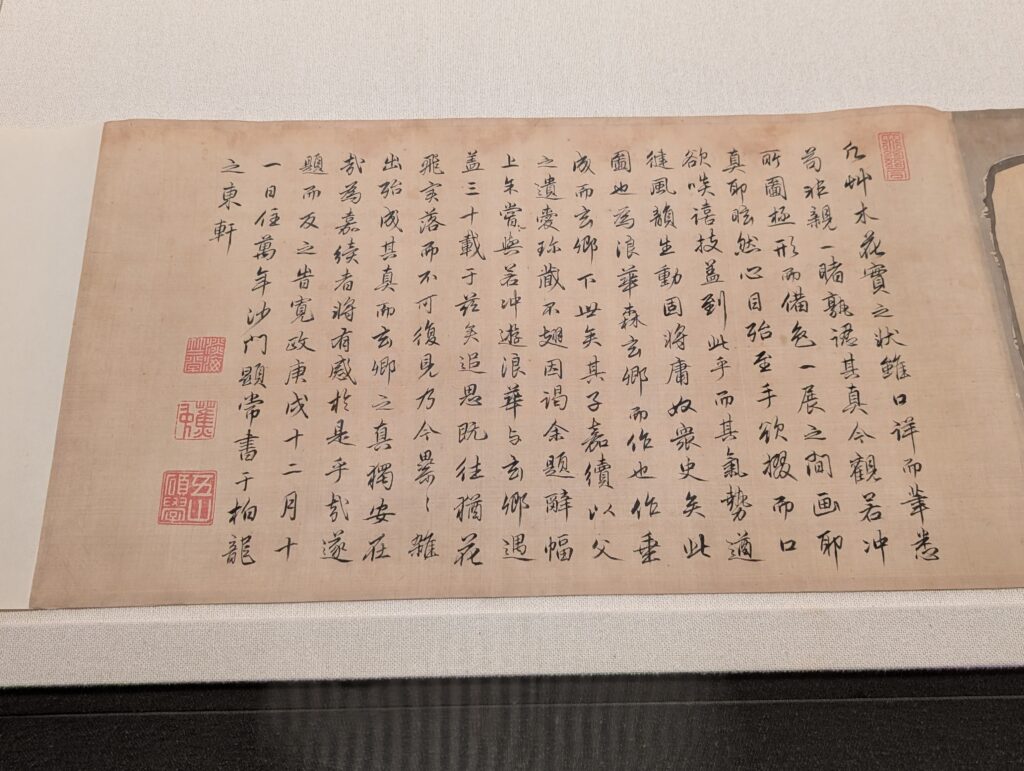 凡艸木花實之狀雖口詳而筆悉
苟非親一睹孰諳其真今觀若冲
所圖極形而備色一展之間画耶
真耶眩然心目殆至手欲掇而口
欲啖譆技盖到此乎而其氣勢遒
縫風韻生動固將庸奴衆史矣此
圖也為浪華森玄卿而作也作垂
成而玄卿下世矣其子嘉續以父
之遺愛珎藏不翅因謁余題辭幅
上余嘗與若冲遊浪華与玄卿遇
盖三十載于茲矣追思既往猶花
飛實落而不可復見乃今纍〻雜
出殆成其真而玄卿之真獨安在
哉為嘉續者將有感於是乎哉遂
題而反之旹寛政庚戌十二月十
一日住萬年沙門顕常書于栢龍
之東軒
五山碩學